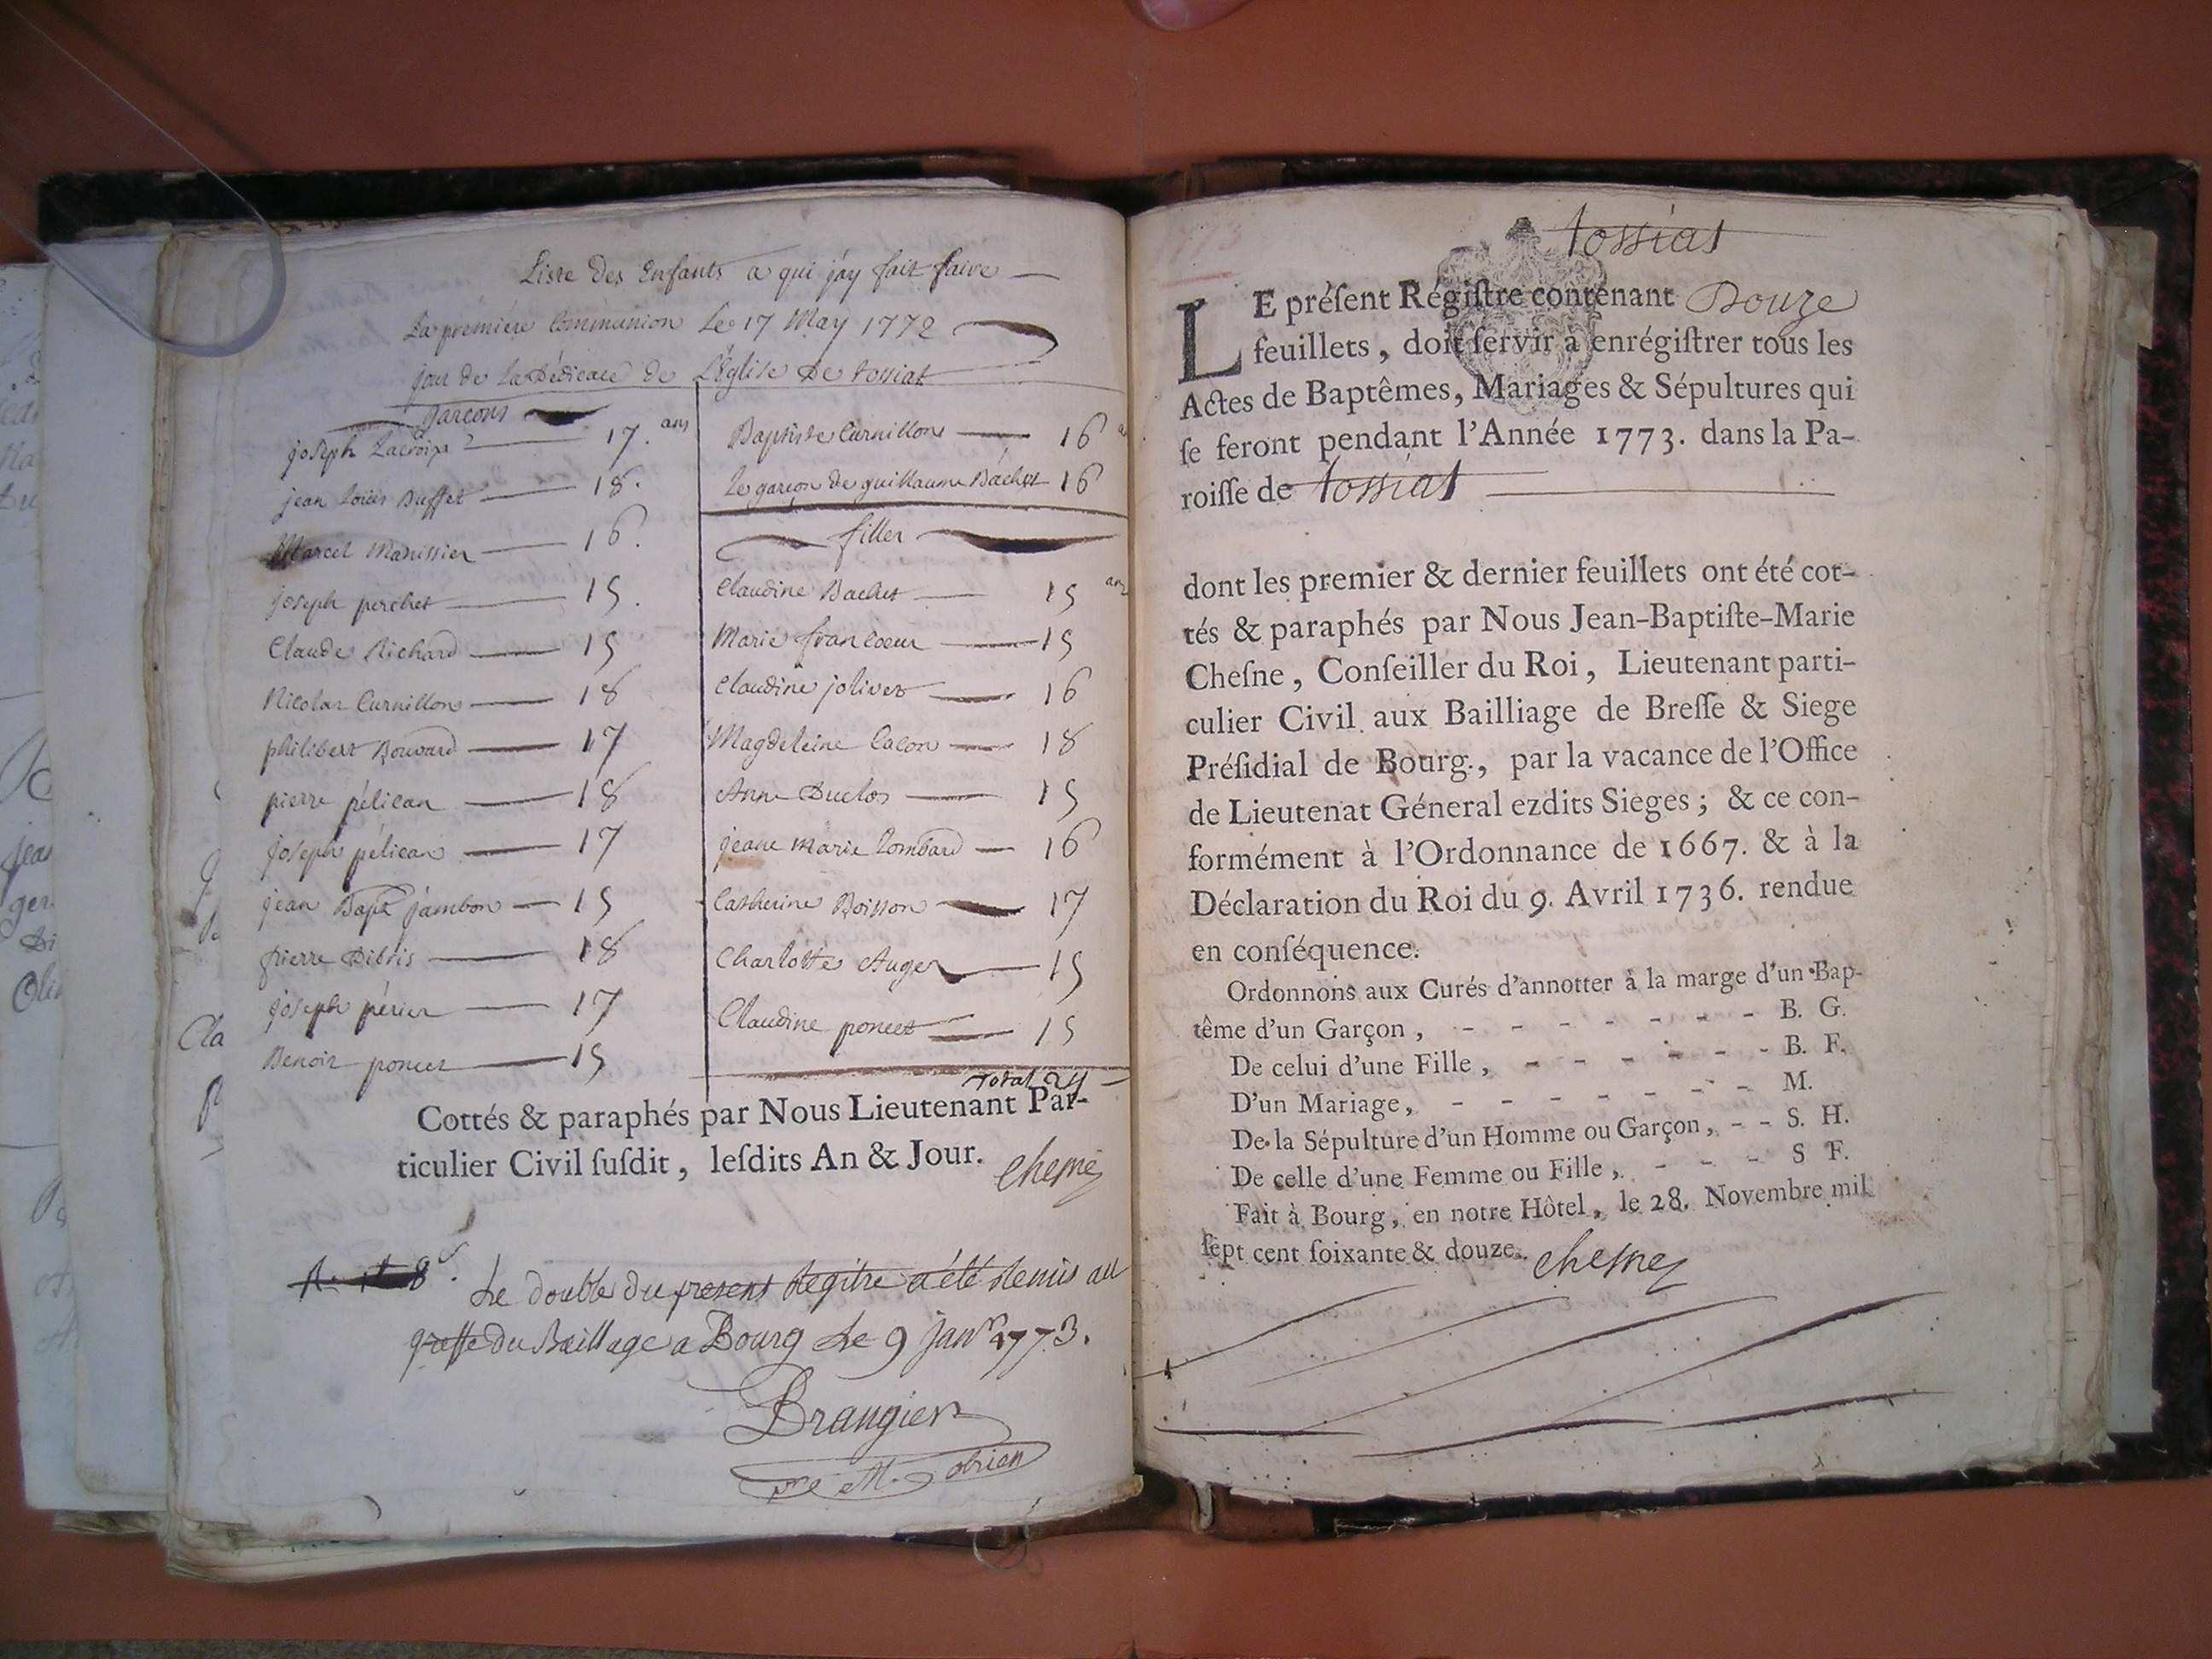 Liste des Enfants a qui j'ay fait faire
La première Communion Le 17 May 1772
jour de La Dédicace de L'Eglise De tossiat
garcons
joseph Lacroix 17. ans
jean Louis Buffet 18.
Marcel Manissier 16.
joseph perchet 15.
Claude Richard 15
Nicolas Curnillon 18
philibert Bouvard 17
pierre pélican 18
joseph pélican 17
jean Bapt jambon 15
pierre Dibris 18
joseph périer 17
Benoit poncet 15
Baptiste Curnillon 16
Le garcon de guillaume Bachet 16
filles
Claudine Bachet 15 ans
Marie francoeur 15
Claudine jolivet 16
Magdeleine Calon 18
Anne Duclos 15
jeane Marie Lombard 16
Catherine Boisson 17
Charlotte Auger 15
Claudine poncet 15
Total 24
Cottés & paraphés par Nous Lieutenant Par-
ticulier Civil ſuſdit, leſdits An & Jour. Chesne
Le double du present Regitre a été Remis au
greffe du Baillage a Bourg Le 9 janvr 1773.
Brangier
tossiat
LE préſent Régiſtre contenant Douze
feuillets, doit ſervir à enrégiſtrer tous les
Actes de Baptêmes, Mariages & Sépultures qui
ſe feront pendant l'Année 1773. dans la Pa-
roiſſe de tossiat
dont les premier & dernier feuillets ont été cot-
tés & paraphés par Nous Jean-Baptiſte-Marie
Cheſne, Conſeiller du Roi, Lieutenant parti-
culier Civil aux Bailliage de Breſſe & Siege
Préſidial de Bourg, par la vacance de l'Office
de Lieutenat Géneral ezdits Sieges; & ce con-
formément à l'Ordonnance de 1667. & à la
Déclaration du Roi du 9. Avril 1736. rendue
en conſéquence.
Ordonnons aux Curés d'annotter à la marge d'un Bap-
tême d'un Garçon, - - - - - - - B. G.
De celui d'une Fille, - - - - - - B. F.
D'un Mariage, - - - - - - - M.
De la Sépulture d'un Homme ou Garçon, - - S. H.
De celle d'une Femme ou Fille, - - - S F.
Fait à Bourg, en notre Hôtel, le 28. Novembre mil
ſept cent ſoixante & douze. Chesne